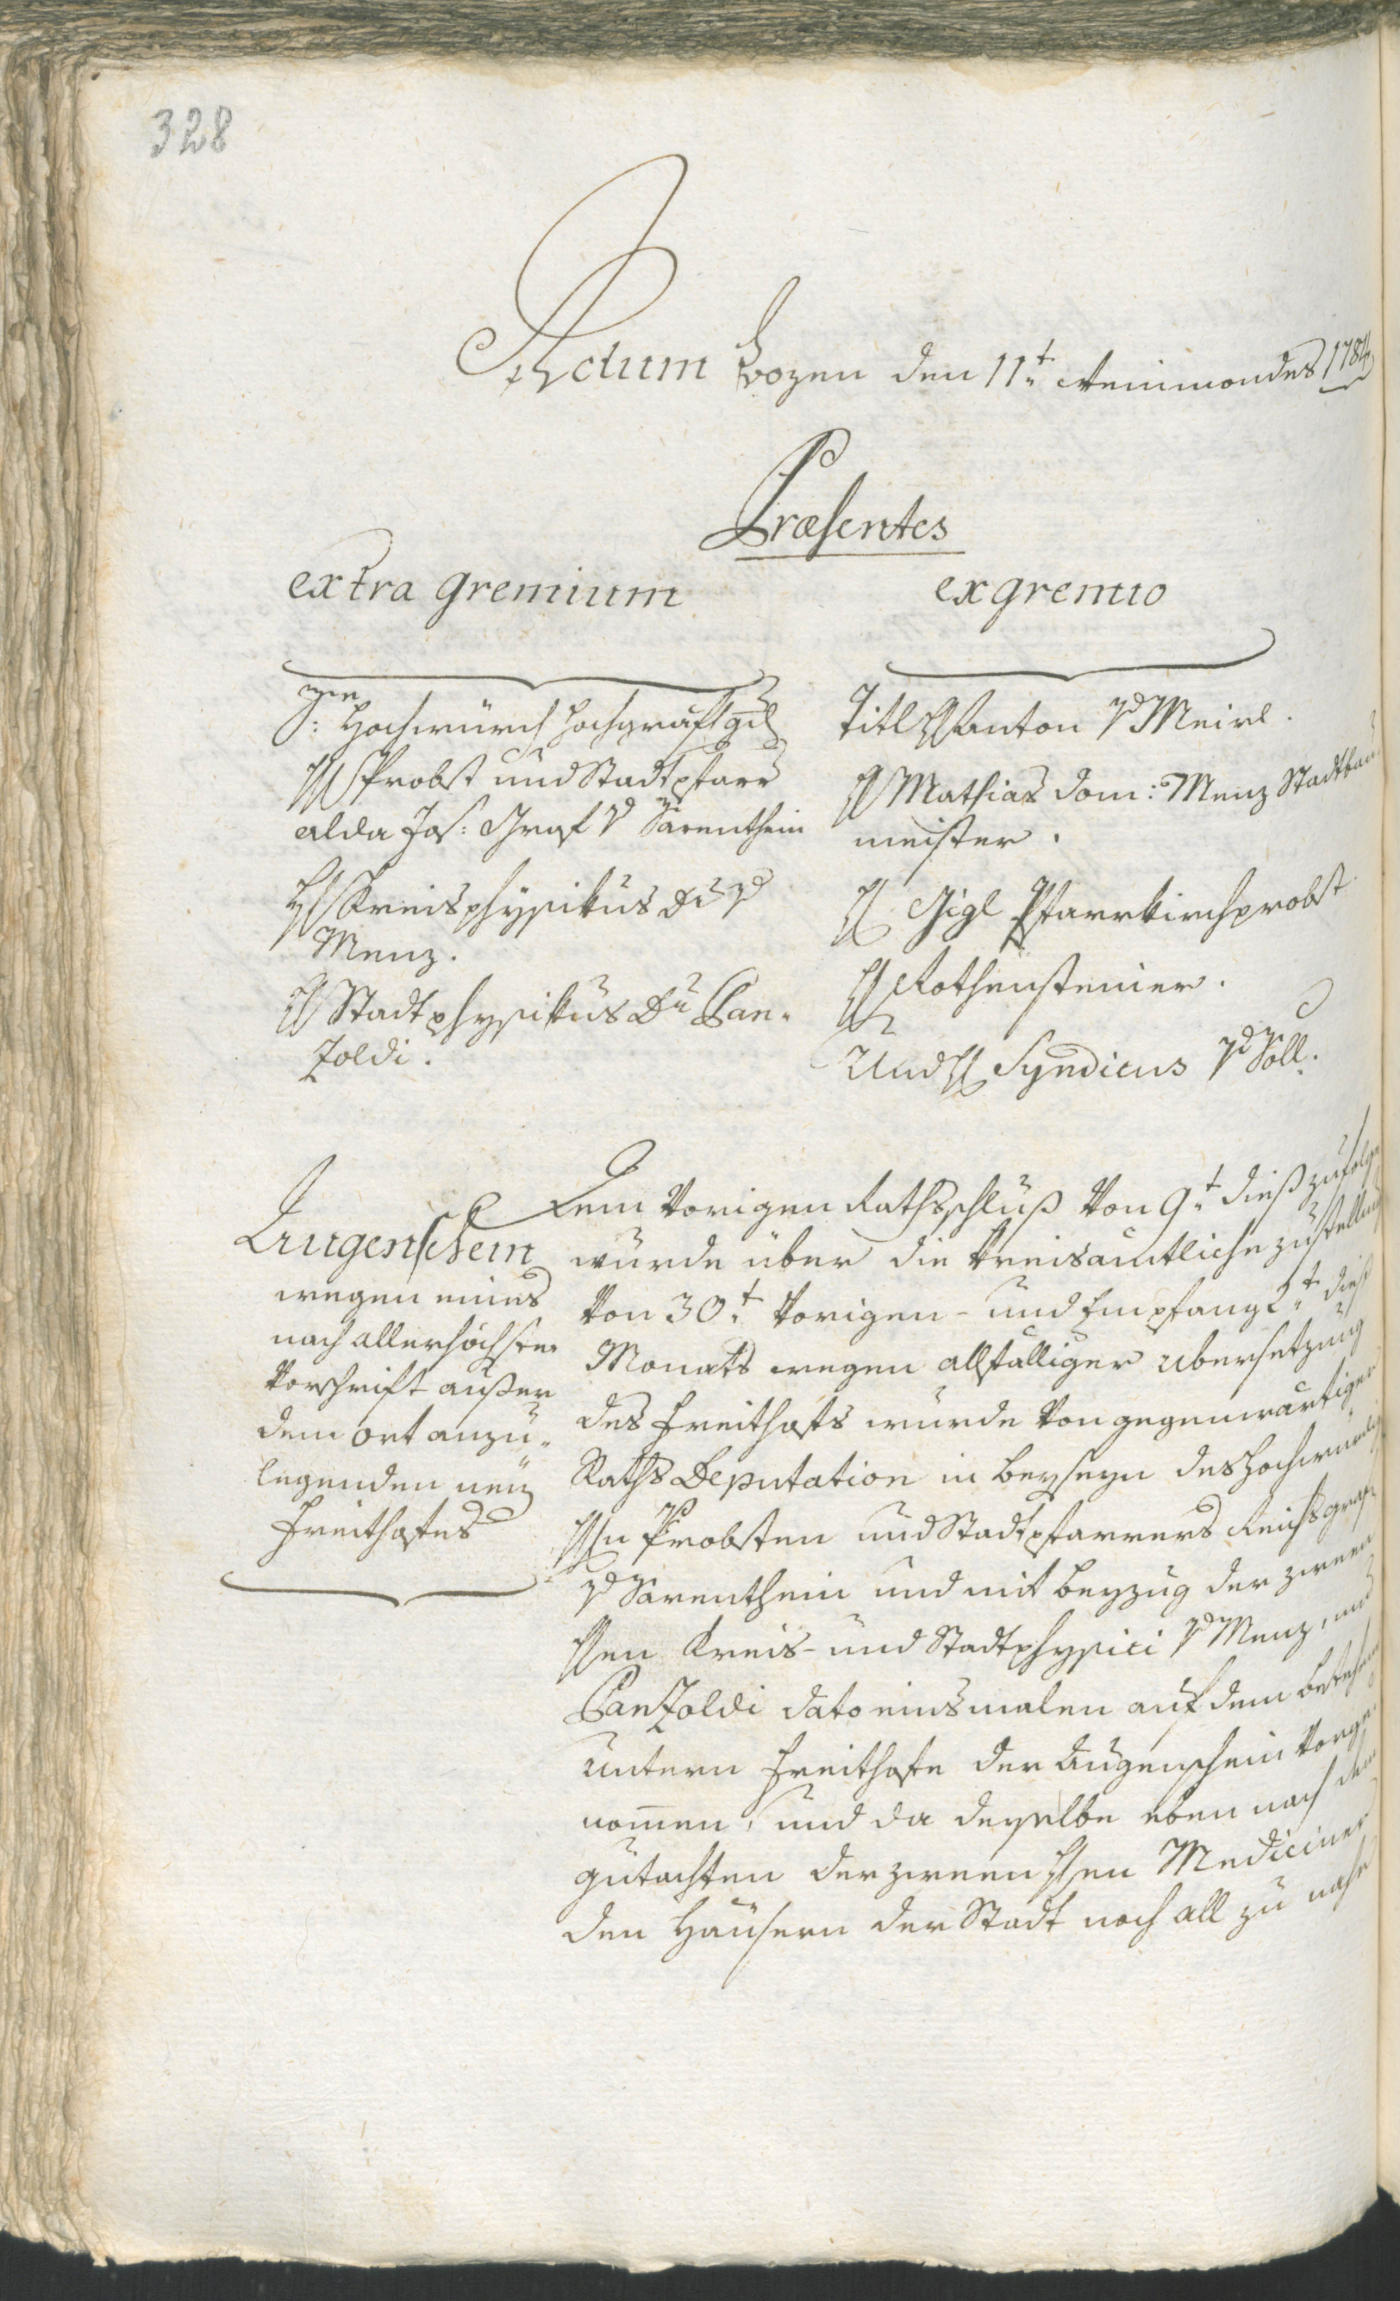 328
Actum Bozen den 11.t Weinmondes 1784
Præsentes
extra gremium
Hochwürd Hochgräfl gd
H Probst und Stadtpfarr
alda Jos: Graf v Sarenthein
H Kreisphÿsikus Dr v
Menz.
H Stadtphysikus Dr Pan-
zoldi.
ex gremio
Titl H Anton v Meirl.
H Mathias Dom: Menz Stadtbau
meister.
H Gigl Pfarrkirchprobst
H Rothensteiner.
Und H Syndicus v Söll.
Augenschein
wegen eines
nach allerhöchster
Vorschrift ausser
dem ort anzu-
legenden neüen
Freithofes
Dem vorigen Rathsschluß von 9.t dieß zufolge
wurde über die kreisamtliche zustellung
von 30.t vorigen- und Empfang 2.t dieß
Monats wegen allfälliger übersetzung
des Freithofs wurde von gegenwärtiger
Raths Deputation in beyseyn des Hochwürdig
Hn Probsten und Stadtpfarrers Reichsgraf
v Sarenthein und mit beyzug der zween
Hen Kreis- und Stadtphysici v Menz, und
Panzoldi dato einsmalen auf dem bestehen
untern Freithofe der Augenschein vorge
nommen, und da derselbe eben nach dem
gutachten der zween Hen Mediciner
den Häusern der Stadt noch all zu nahe